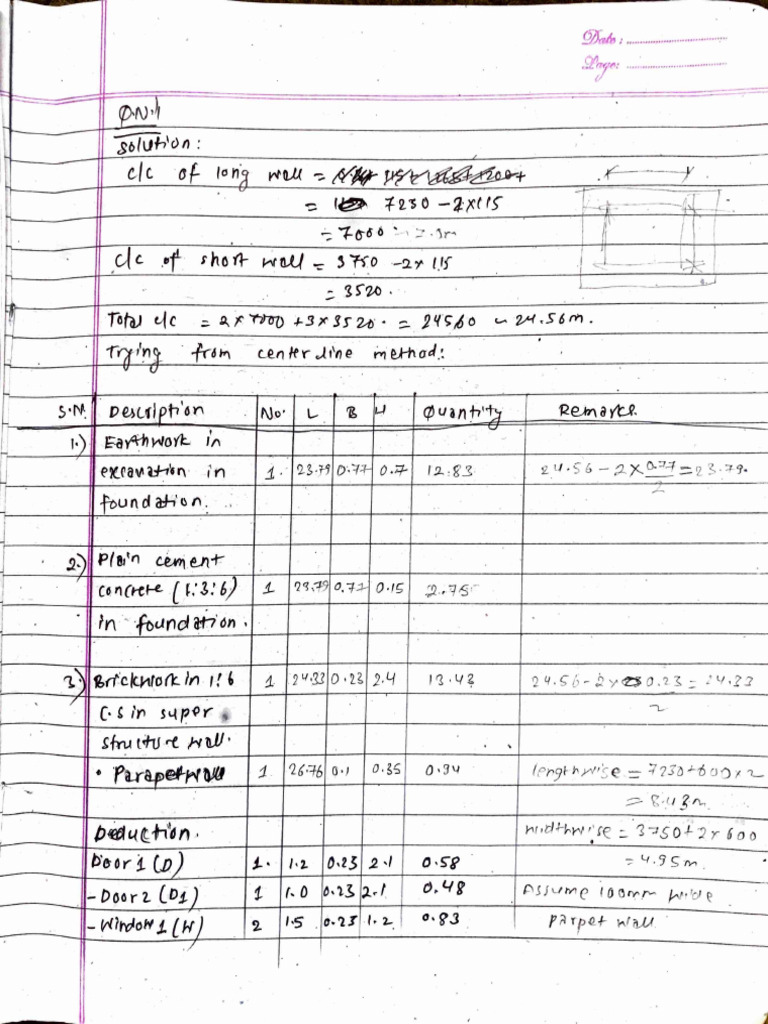 Date :
Page:
Q.N.1
Solution:
c/c of long wall =
= 7230 - 2x115
= 7000
c/c of short wall = 3750 - 2x115
= 3520.
Total c/c = 2x7000 + 3x3520. = 24560 ~ 24.56m.
Trying from center line method:
S.N. Description No. L B H Quantity Remarks
1.) Earthwork in
excavation in 1. 23.79 0.77 0.7 12.83 24.56 - 2 x 0.77/2 = 23.79.
foundation.
2.) Plain cement
concrete (1:3:6) 1 23.79 0.77 0.15 2.75
in foundation.
3.) Brickwork in 1:6 1 24.33 0.23 2.4 13.43 24.56 - 2x 0.23/2 = 24.33
C.S in super
structure wall.
• Parapet wall 1 26.76 0.1 0.35 0.94 lengthwise = 7230+600x2
= 8.43m
Deduction. widthwise = 3750+2x600
Door 1 (D) 1. 1.2 0.23 2.1 0.58 = 4.95m.
- Door 2 (D1) 1 1.0 0.23 2.1 0.48 Assume 100mm wide
- Window 1 (W) 2 1.5 0.23 1.2 0.83 parpet wall